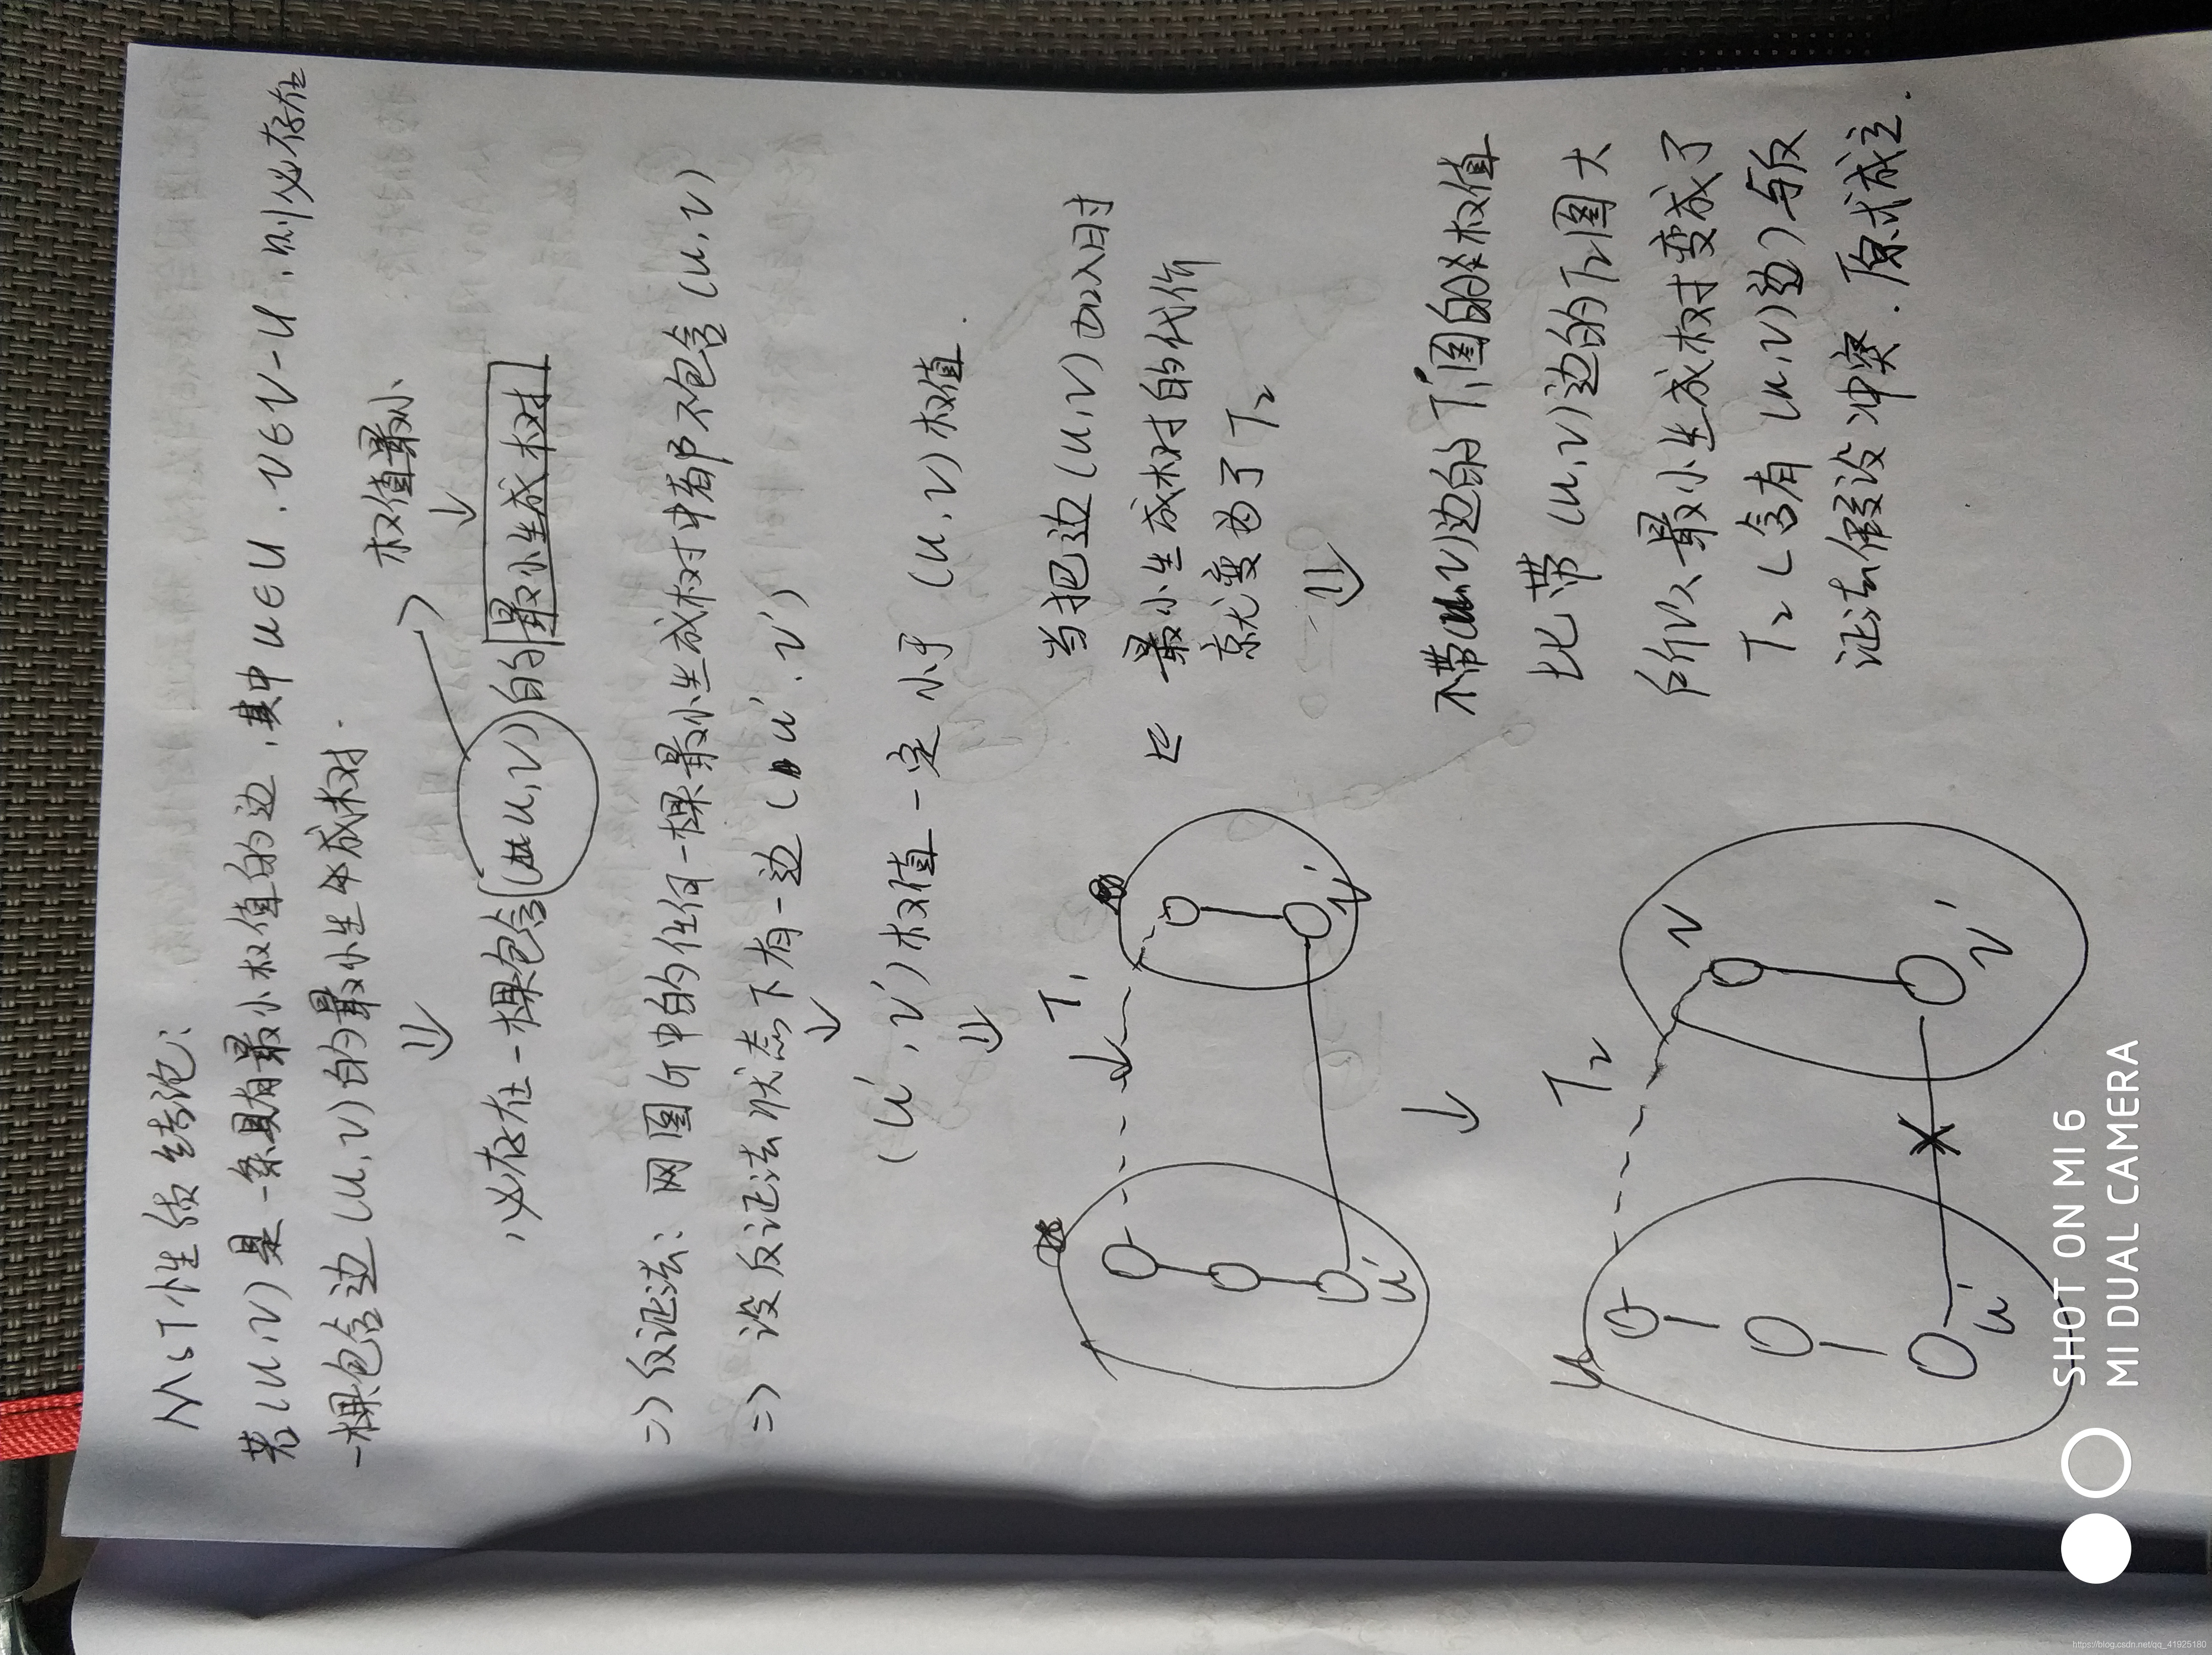 MST性质结论:
若(u,v)是一条具有最小权值的边,其中u∈U,v∈V-U,则必存在
一棵包含边(u,v)的最小生成树.
⇓
权值最小
↓
必存在一棵包含(u,v)的最小生成树
=) 反证法: 网图中的任何一棵最小生成树中都不包含(u,v)
=) 设反证法状态下有一边(u',v')
↓
(u',v')权值一定小于(u,v)权值.
⇓
T1
u'
v'
当把边(u,v)加入时
最小生成树的代价
就变为了T2
⇓
↓
T2
u
v
u'
v'
不带(u,v)边的T1图的权值
比带(u,v)边的T2图大
所以最小生成树变成了
T2(含有(u,v)边)与反
证法假设冲突.原式成立.
SHOT ON MI 6
MI DUAL CAMERA
https://blog.csdn.net/qq_41925180